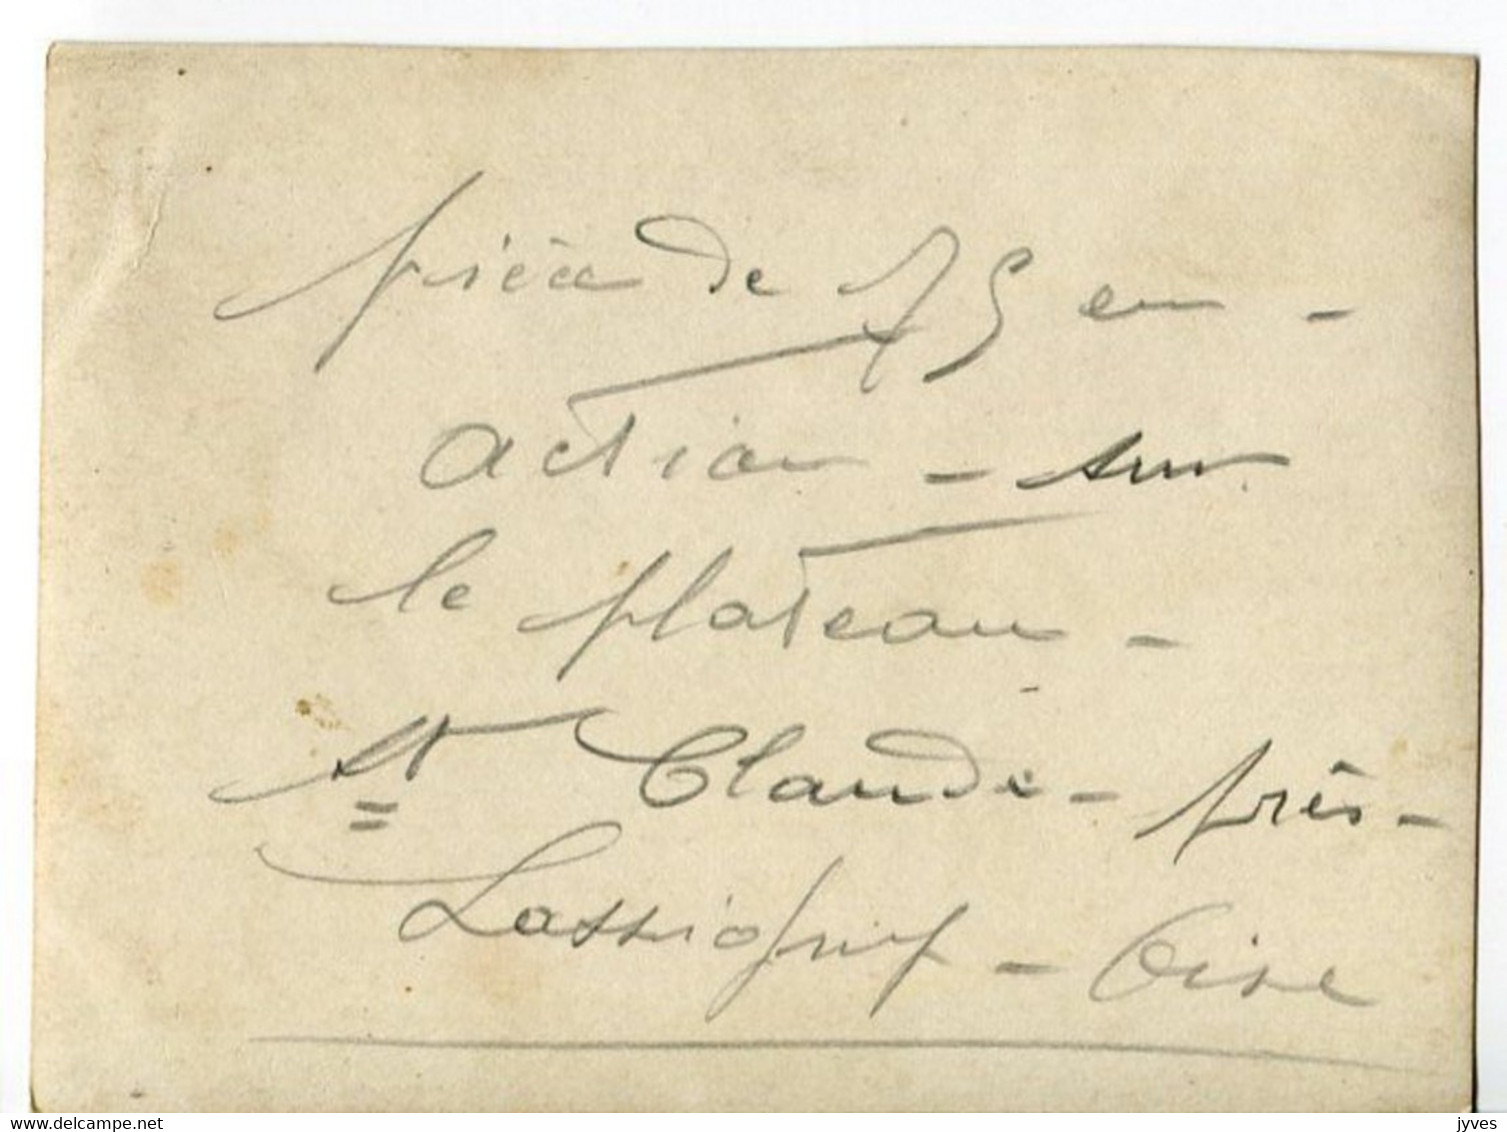 pièce de 75 en -
action - sur
le plateau -
St Claude - près -
Lassigny - Oise
delcampe.net
jyves